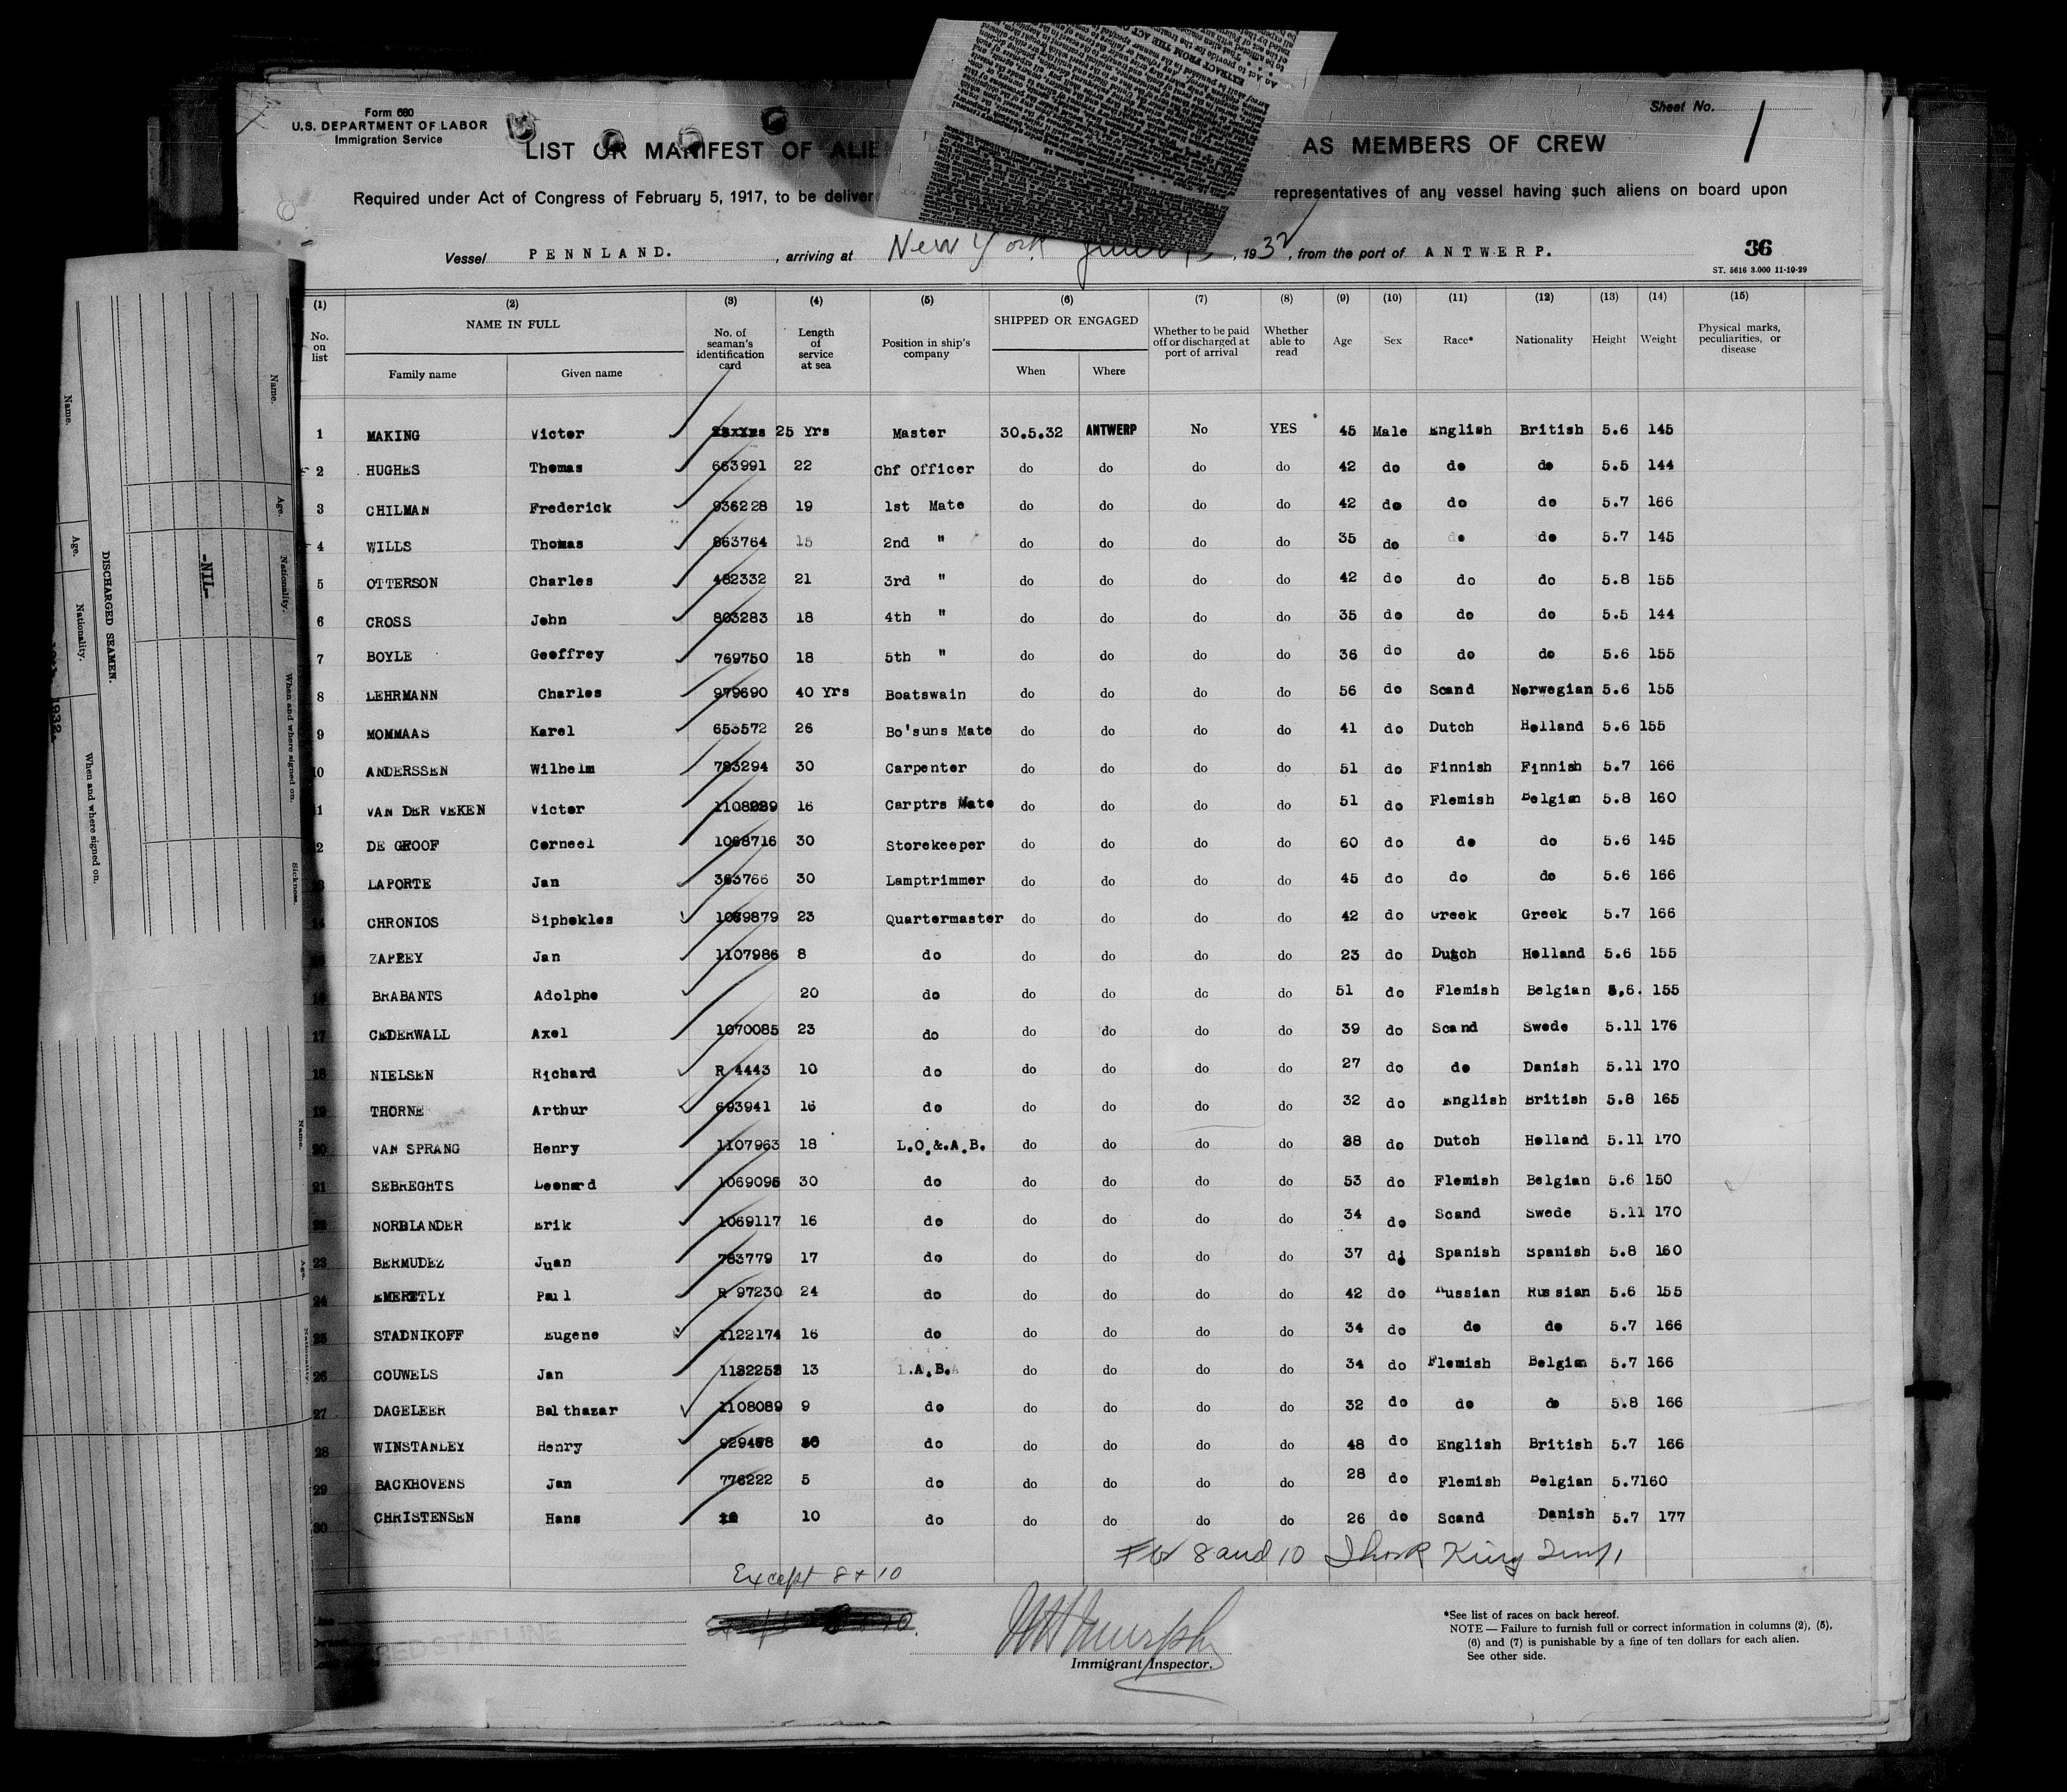 Form 680
U.S. DEPARTMENT OF LABOR
Immigration Service
Sheet No. 1
LIST OR MANIFEST OF ALIE AS MEMBERS OF CREW
Required under Act of Congress of February 5, 1917, to be deliver representatives of any vessel having such aliens on board upon
Vessel PENNLAND. , arriving at New York , 1932, from the port of ANTWERP.
36
ST. 5616 3.000 11-10-29
(1) (2) (3) (4) (5) (6) (7) (8) (9) (10) (11) (12) (13) (14) (15)
No. on list NAME IN FULL Family name Given name No. of seaman's identification card Length of service at sea Position in ship's company SHIPPED OR ENGAGED When Where Whether to be paid off or discharged at port of arrival Whether able to read Age Sex Race* Nationality Height Weight Physical marks, peculiarities, or disease
1 MAKING Victor 25 Yrs Master 30.5.32 ANTWERP No YES 45 Male English British 5.6 145
2 HUGHES Thomas 663991 22 Chf Officer do do do do 42 do do do 5.5 144
3 CHILMAN Frederick 936228 19 1st Mate do do do do 42 do do do 5.7 166
4 WILLS Thomas 863764 15 2nd " do do do do 35 do do do 5.7 145
5 OTTERSON Charles 482332 21 3rd " do do do do 42 do do do 5.8 155
6 CROSS John 803283 18 4th " do do do do 35 do do do 5.5 144
7 BOYLE Geoffrey 769750 18 5th " do do do do 36 do do do 5.6 155
8 LEHRMANN Charles 979690 40 Yrs Boatswain do do do do 56 do Scand Norwegian 5.6 155
9 MOMMAAS Karel 653572 26 Bo'suns Mate do do do do 41 do Dutch Holland 5.6 155
10 ANDERSSEN Wilhelm 783294 30 Carpenter do do do do 51 do Finnish Finnish 5.7 166
11 VAN DER VEKEN Victor 1108989 16 Carptrs Mate do do do do 51 do Flemish Belgian 5.8 160
2 DE GROOF Corneel 1068716 30 Storekeeper do do do do 60 do do do 5.6 145
13 LAPORTE Jan 363766 30 Lamptrimmer do do do do 45 do do do 5.6 166
14 CHRONIOS Siphokles 1089879 23 Quartermaster do do do do 42 do Greek Greek 5.7 166
15 ZAPPEY Jan 1107986 8 do do do do do 23 do Dutch Holland 5.6 155
16 BRABANTS Adolphe 20 do do do do do 51 do Flemish Belgian 5,6. 155
17 CEDERWALL Axel 1070085 23 do do do do do 39 do Scand Swede 5.11 176
18 NIELSEN Richard R 4443 10 do do do do do 27 do do Danish 5.11 170
19 THORNE Arthur 693941 16 do do do do do 32 do English British 5.8 165
20 VAN SPRANG Henry 1107963 18 L.O.&.A.B. do do do do 38 do Dutch Holland 5.11 170
21 SEBREGHTS Leonard 1069095 30 do do do do do 53 do Flemish Belgian 5.6 150
22 NORDLANDER Erik 1069117 16 do do do do do 34 do Scand Swede 5.11 170
23 BERMUDEZ Juan 783779 17 do do do do do 37 do Spanish Spanish 5.8 160
24 Paul R 97230 24 do do do do do 42 do Russian Russian 5.6 155
25 STADNIKOFF Eugene 1122174 16 do do do do do 34 do do do 5.7 166
26 COUWELS Jan 13 .A.B. do do do do 34 do Flemish Belgian 5.7 166
27 DAGELEER Balthazar 1108089 9 do do do do do 32 do do do 5.8 166
28 WINSTANLEY Henry do do do do do 48 do English British 5.7 166
29 BACKHOVENS Jan 776222 5 do do do do do 28 do Flemish Belgian 5.7 160
30 CHRISTENSEN Hans 10 do do do do do 26 do Scand Danish 5.7 177
8 and 10
Except 8 + 10
Immigrant Inspector.
*See list of races on back hereof.
NOTE — Failure to furnish full or correct information in columns (2), (5),
(6) and (7) is punishable by a fine of ten dollars for each alien.
See other side.
EXTRACT FROM THE ACT
DISCHARGED SEAMEN.
Name. Age. Nationality. When and where signed on.
-NIL-
Name. Age. Nationality. When and where signed on. Sickness.